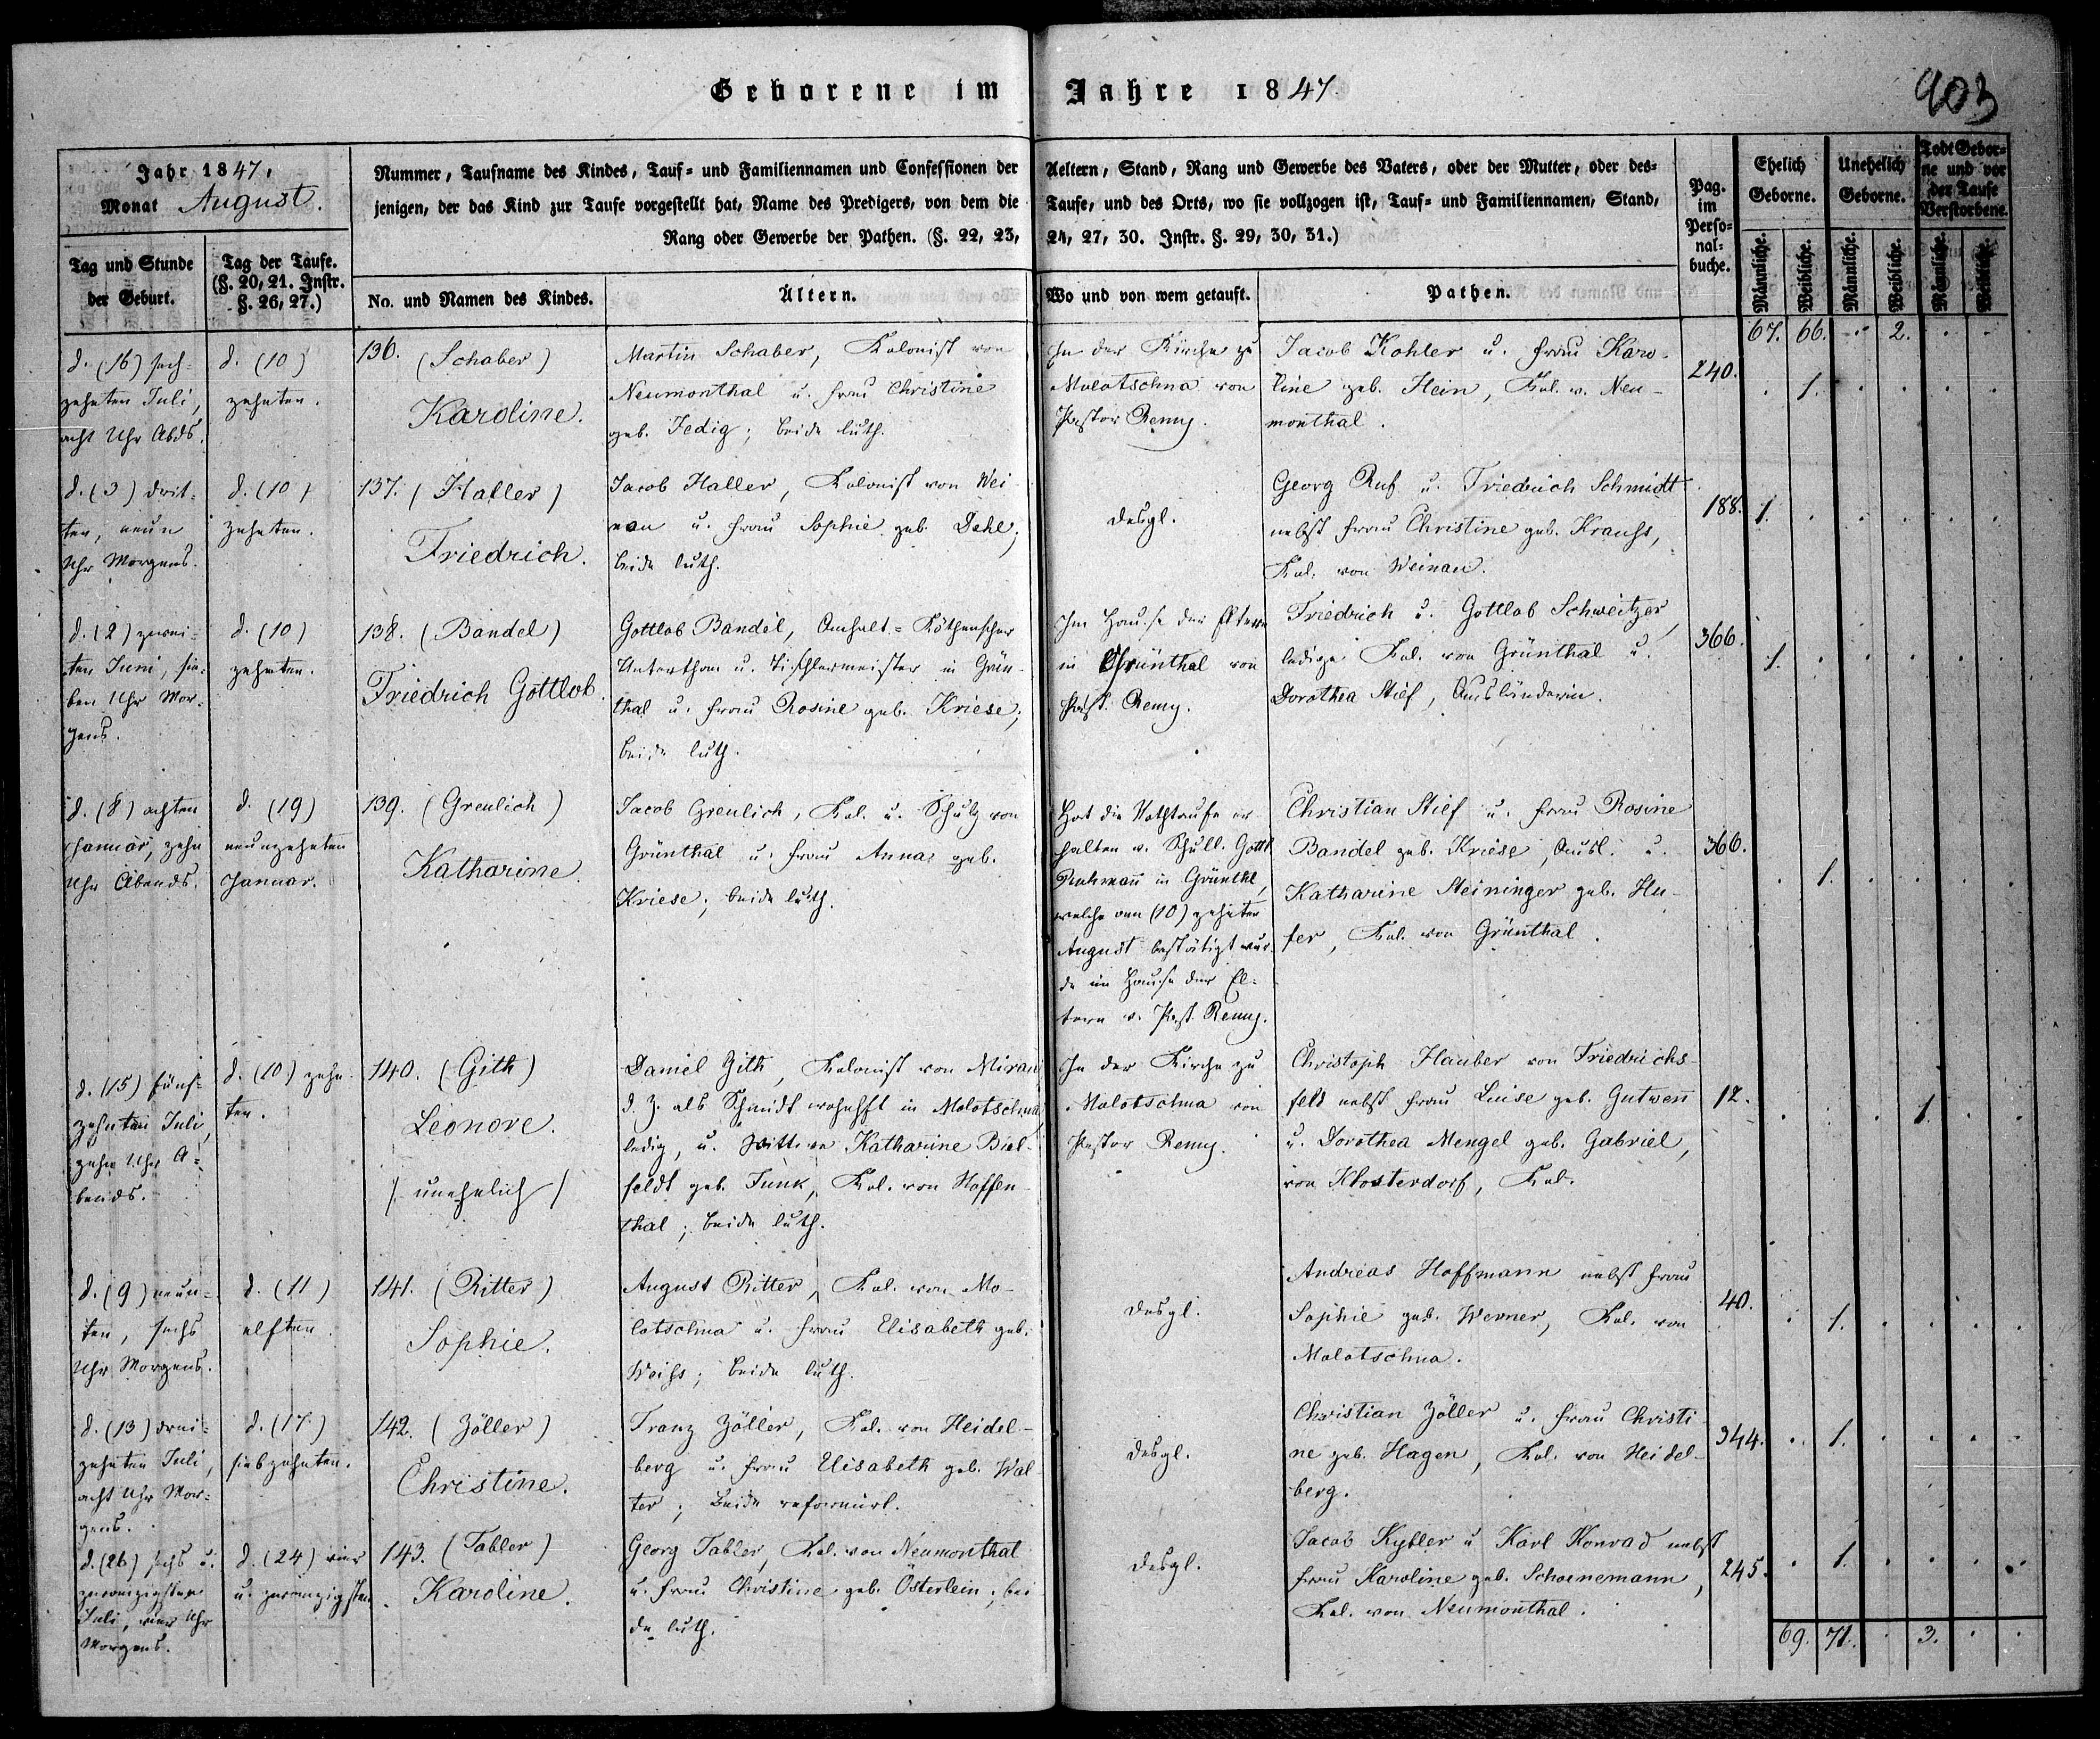 Geborene im Jahre 1847
903
Jahr 1847,
Monat August.
Nummer, Taufname des Kindes, Tauf- und Familiennamen und Confessionen der Aeltern, Stand, Rang und Gewerbe des Vaters, oder der Mutter, oder des-
jenigen, der das Kind zur Taufe vorgestellt hat, Name des Predigers, von dem die Taufe, und des Orts, wo sie vollzogen ist, Tauf- und Familiennamen, Stand,
Rang oder Gewerbe der Pathen. (§. 22, 23, 24, 27, 30. Instr. §. 29, 30, 31.)
Pag.
im
Perso-
nal-
buche.
Ehelich
Geborne.
Unehelich
Geborne.
Todt Gebor-
ne und vor
der Taufe
Verstorbene.
Tag und Stunde
der Geburt.
Tag der Taufe.
(§. 20, 21. Instr.
§. 26, 27.)
No. und Namen des Kindes.
Ältern.
Wo und von wem getauft.
Pathen.
Männliche.
Weibliche.
Männliche.
Weibliche.
Männliche.
Weibliche.
67. 66. 2.
d. (16) sech-
zehnten Juli,
acht Uhr Abds.
d. (10)
zehnten.
136. (Schaber)
Karoline.
Martin Schaber, Kolonist von
Neumonthal u. Frau Christine
geb. Jedig; beide luth.
In der Kirche zu
Molotschna von
Pastor Remy.
Jacob Kohler u. Frau Karo-
line geb. Hein, Kol. v. Neu-
monthal.
240.
1.
d. (3) drit-
ten, neun
Uhr Morgens.
d. (10)
zehnten.
137. (Haller)
Friedrich.
Jacob Haller, Kolonist von Wei
nau u. Frau Sophie geb. Dehl;
beide luth.
desgl.
Georg Ruf u. Friedrich Schmidt
nebst Frau Christine geb. Krauhs,
Kol. von Weinau.
188.
1.
d. (2) zwei-
ten Juni, sie-
ben Uhr Mor-
gens.
d. (10)
zehnten.
138. (Bandel)
Friedrich Gottlob.
Gottlob Bandel, Anhalt-Köthenscher
Unterthan u. Tischlermeister in Grün-
thal u. Frau Rosine geb. Kriese;
beide luth.
Im Hause der Eltern
in Grünthal von
Past. Remy.
Friedrich u. Gottlob Schweitzer,
ledige Kol. von Grünthal u.
Dorothea Stief, Ausländerin.
366.
1.
d. (8) achten
Januar, zehn
Uhr Abends.
d. (19)
neunzehnten
Januar.
139. (Greulich)
Katharine.
Jacob Greulich, Kol. u. Schulz von
Grünthal u. Frau Anna geb.
Kriese; beide luth.
Hat die Nothtaufe er-
halten v. Schull. Gottl.
Ruhmann in Grünthl,
welche am (10) zehnten
August bestätigt wur-
de im Hause der El-
tern v. Past. Remy.
Christian Stief u. Frau Rosine
Bandel geb. Kriese, Ausl. u.
Katharine Steininger geb. Hu-
fer, Kol. von Grünthal.
366.
1.
d. (15) fünf-
zehnten Juli,
zehn Uhr A-
bends.
d. (10) zehn-
ten.
140. (Gith)
Leonore.
/unehelich/
Daniel Gith, Kolonist von Mirau
d. Z. als Schmidt wohnhft in Molotschna,
ledig, u. Wittwe Katharine Biel-
feldt geb. Funk, Kol. von Hoffen-
thal; beide luth.
In der Kirche zu
Molotschna von
Pastor Remy.
Christoph Hauber von Friedrichs-
feld nebst Frau Luise geb. Gutwen
u. Dorothea Mengel geb. Gabriel,
von Klosterdorf, Kol.
12.
1.
d. (9) neun-
ten, sechs
Uhr Morgens.
d. (11)
elften.
141. (Ritter)
Sophie.
August Ritter, Kol. von Mo-
lotschna u. Frau Elisabeth geb.
Weihs; beide luth.
desgl.
Andreas Hoffmann nebst Frau
Sophie geb. Werner, Kol. von
Molotschna.
40.
1.
d. (13) drei-
zehnten Juli,
acht Uhr Mor-
gens.
d. (17)
siebzehnten.
142. (Zöller)
Christine.
Franz Zöller, Kol. von Heidel-
berg u. Frau Elisabeth geb. Wal-
ter; beide reformirt.
desgl.
Christian Zöller u. Frau Christi
ne geb. Hagen, Kol. von Heidel-
berg.
344.
1.
d. (26) sechs u.
zwanzigsten
Juli, vier Uhr
Morgens.
d. (24) vier
u. zwanzigsten.
143. (Tabler)
Karoline.
Georg Tabler, Kol. von Neumonthal
u. Frau Christine geb. Österlein; bei
de luth.
desgl.
Jacob Kybler u Karl Konrad nebst
Frau Karoline geb. Schoenemann,
Kol. von Neumonthal.
245.
1.
69. 71. 3.